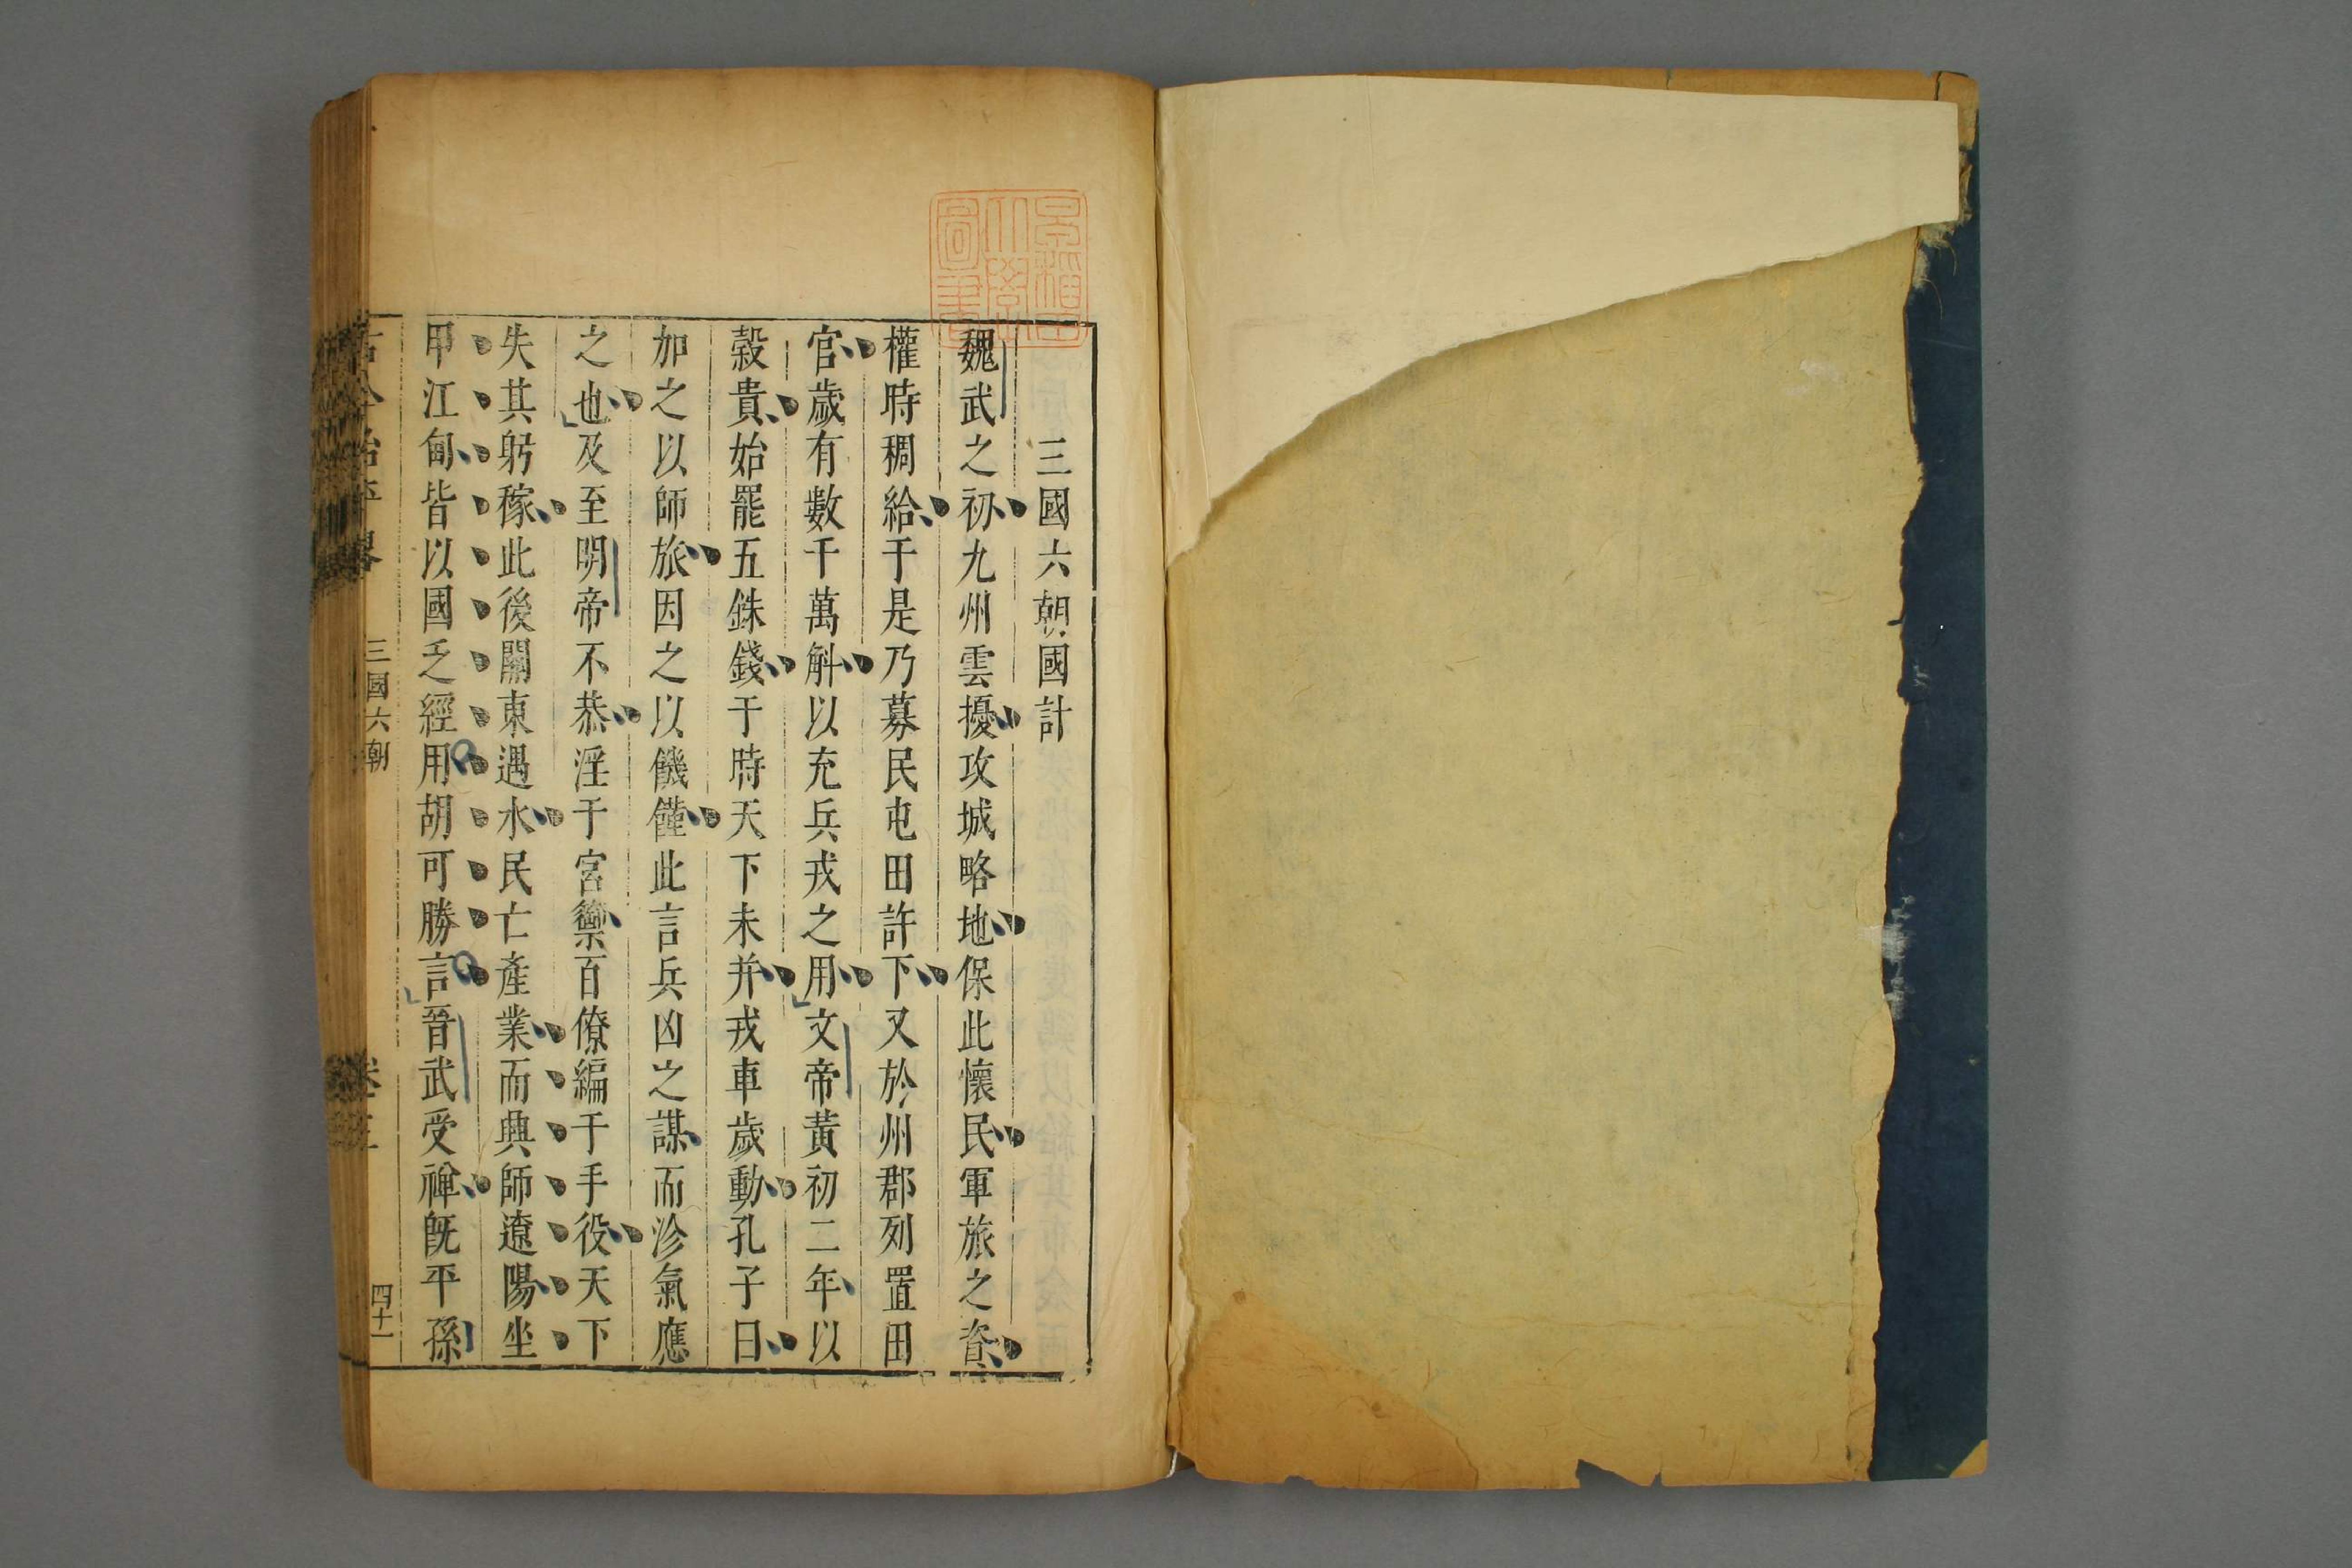 三國六朝國計
魏武之初九州雲擾攻城略地保此懷民軍旅之資
權時稠給于是乃募民屯田許下又於州郡列置田
官歲有數千萬斛以充兵戎之用文帝黃初二年以
穀貴始罷五銖錢于時天下未并戎車歲動孔子曰
加之以師旅因之以饑饉此言兵凶之謀而沴氣應
之也及至明帝不恭淫于宮籞百僚編于手役天下
失其躬稼此後關東遇水民亡產業而興師遼陽坐
甲江甸皆以國乏經用胡可勝言晉武受禪既平孫
三國六朝
卷三
四十一
早稻田大學圖書